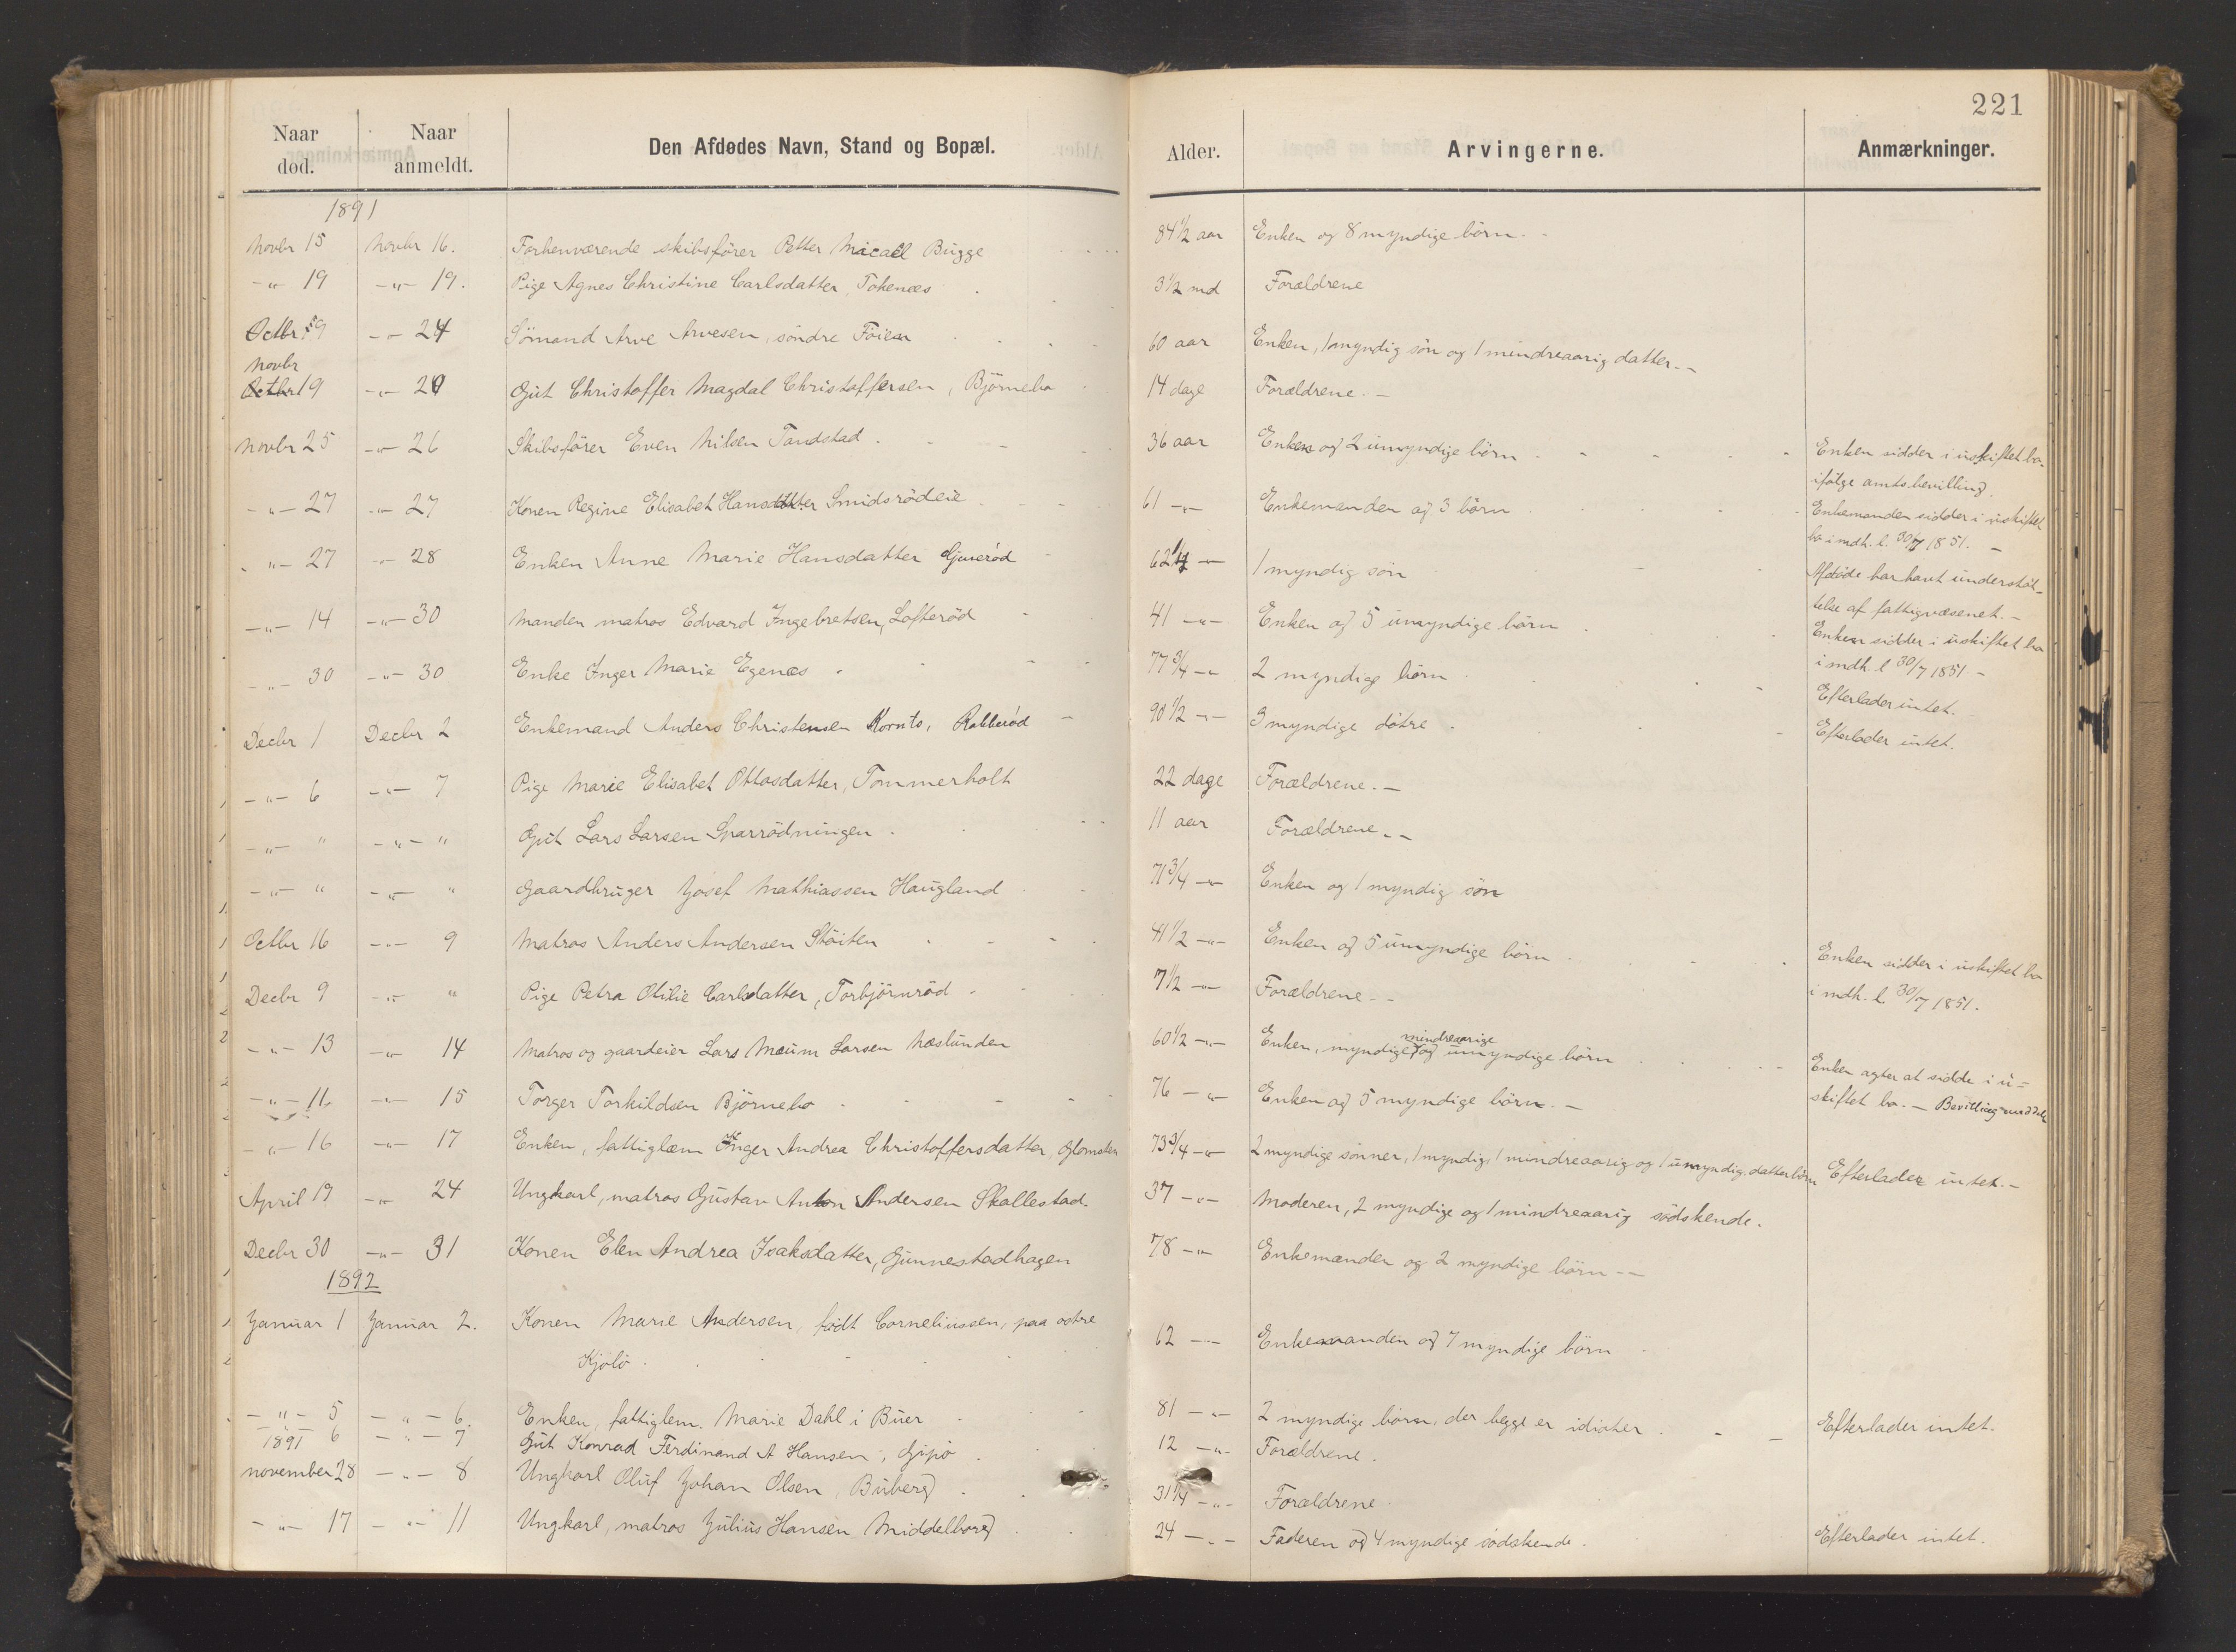 221
Naar død. Naar anmeldt. Den Afdødes Navn, Stand og Bopæl. Alder. Arvingerne. Anmærkninger.
1891
Novbr 15 Novbr 16. Forhenværende skibsfører Petter Micael Bugge 84 1/2 aar Enken og 8 myndige børn.
-"- 19 -"- 19. Pige Agnes Christine Carlsdatter, Tokenæs 3 1/2 md Forældrene
Octbr 9 -"- 24 Sömand Arve Arvesen, söndre Föien 60 aar Enken, 1 myndig sön og 1 mindreaarig datter.
Novbr
19 -"- 24 Gut Christoffer Magdal Christoffersen, Björnebo 14 dage Forældrene.
Novbr 25 -"- 26 Skibsfører Even Nilsen Tandstad 36 aar Enken og 2 umyndige börn Enken sidder i uskiftet bo
ifølge amtsbevilling.
-"- 27 -"- 27 Konen Regine Elisabet Hansdatter Smidsrödeie 61 -"- Enkemanden og 3 börn Enkemanden sidder i uskiftet
bo i mdh. l. 30/7 1851.
-"- 27 -"- 28 Enken Anne Marie Hansdatter 62 1/4 -"- 1 myndig sön Afdöde har havt understöt-
telse af fattigvæsenet.
-"- 14 -"- 30 Manden matros Edvard Ingebretsen, Lofteröd 41 -"- Enken og 5 umyndige börn Enken sidder i uskiftet bo
i mdh. l 30/7 1851.
-"- 30 -"- 30 Enke Inger Marie Egenæs 77 3/4 -"- 2 myndige börn Efterlader intet.
Decbr 1 Decbr 2 Enkemand Anders Christensen Robberöd 90 1/2 -"- 3 myndige døtre Efterlader intet.
-"- 6 -"- 7 Pige Marie Elisabet Ottosdatter, Tommerholt 22 dage Forældrene.
-"- " -"- " Gut Lars Larsen Snarrödningen 11 aar Forældrene.
-"- " -"- " Gaardbruger Josef Mathiassen Haugland 71 3/4 -"- Enken og 1 myndig sön
Octbr 16 -"- 9 Matros Anders Andersen Stöiten 41 1/2 -"- Enken og 5 umyndige börn Enken sidder i uskiftet bo
i mdh. l. 30/7 1851.
Decbr 9 -"- " Pige Petra Otilie Carlsdatter, Torbjörnröd 7 1/2 -"- Forældrene.
-"- 13 -"- 14 Matros og gaardeier Lars Mæum Larsen Næslunden 60 1/2 -"- Enken, myndige, mindreaarige og umyndige börn Enken agter at sidde i u-
skiftet bo. - Bevilling meddelt
-"- 11 -"- 15 Torger Torkildsen Björnebo 76 -"- Enken og 5 myndige börn.
-"- 16 -"- 17 Enken, fattiglem Inger Andrea Christoffersdatter, 73 3/4 -"- 2 myndige sönner, 1 myndig, 1 mindreaarig og 1 umyndig datterbörn Efterlader intet.
April 19 -"- 24 Ungkarl, matros Gustav Anton Andersen Skallestad. 37 -"- Moderen, 2 myndige og 1 mindreaarig södskende.
Decbr 30 -"- 31 Konen Elen Andrea Isaksdatter, Gunnestadhagen 78 -"- Enkemanden og 2 myndige börn
1892
Januar 1 Januar 2. Konen Marie Andersen, født Corneliussen, paa østre
Kjölö 62 -"- Enkemanden og 7 myndige börn
-"- 5 -"- 6. Enken, fattiglem. Marie Dahl i Buer 81 -"- 2 myndige börn, der begge er idioter Efterlader intet.
-"- 6 -"- 7 Gut Konrad Ferdinand A Hansen, Gipö 12 -"- Forældrene.
1891
november 28 -"- 8 Ungkarl Oluf Johan Olsen, Buberg 31 1/4 -"- Forældrene.
-"- 17 -"- 11 Ungkarl, matros Julius Hansen Middelborg 24 -"- Faderen og 4 myndige södskende. Efterlader intet.